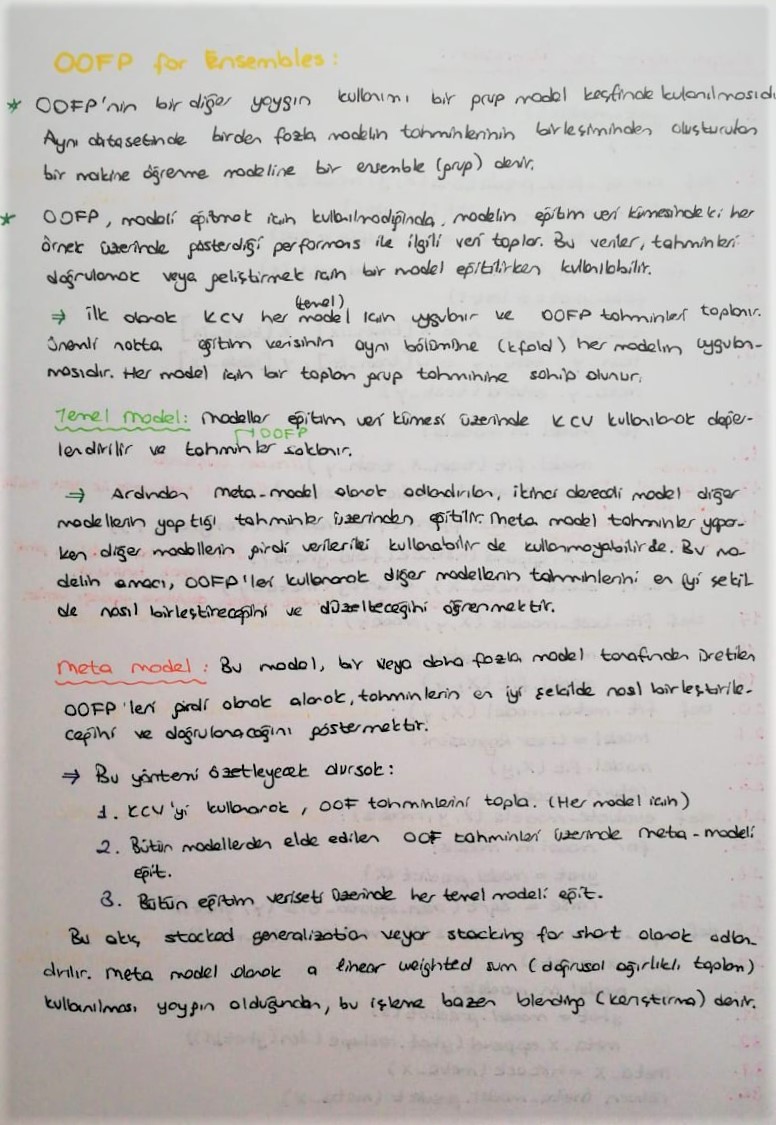 OOFP for Ensembles:
* OOFP'nin bir diğer yaygın kullanımı bir grup model keşfinde kulanılmasıdı
Aynı datasetinde birden fazla modelin tahminlerinin birleşiminden oluşturulan
bir makine öğrenme modeline bir ensemble (grup) denir.
* OOFP, modeli eğitmek için kullanılmadığında, modelin eğitim veri kümesindeki her
örnek üzerinde gösterdiği performans ile ilgili veri toplar. Bu veriler, tahminleri
doğrulamak veya geliştirmek için bir model eğitilirken kullanılabilir.
(temel)
⇒ ilk olarak KCV her model için uygulanır ve OOFP tahminleri toplanır.
Önemli nokta eğitim verisinin aynı bölümüne (kfold) her modelin uygulan-
masıdır. Her model için bir toplam grup tahminine sahip olunur.
Temel model: Modeller eğitim veri kümesi üzerinde KCV kullanılarak değer-
OOFP
lendirilir ve tahminler saklanır.
⇒ Ardından meta-model olarak adlandırılan, ikinci dereceli model diğer
modellerin yaptığı tahminler üzerinden eğitilir. Meta model tahminler yapar-
ken diğer modellerin girdi verilerini kullanabilir de kullanmayabilir de. Bu mo
delin amacı, OOFP'leri kullanarak diğer modellerin tahminlerini en iyi şekil
de nasıl birleştireceğini ve düzelteceğini öğrenmektir.
Meta model: Bu model, bir veya daha fazla model tarafından üretilen
OOFP'leri girdi olarak alarak, tahminlerin en iyi şekilde nasıl birleştirile-
ceğini ve doğrulanacağını göstermektir.
⇒ Bu yöntemi özetleyecek olursak:
1. KCV'yi kullanarak, OOF tahminlerini topla. (Her model için)
2. Bütün modellerden elde edilen OOF tahminleri üzerinde meta-modeli
eğit.
3. Bütün eğitim veriseti üzerinde her temel modeli eğit.
Bu akış, stacked generalization veyar stacking for short olarak adlan-
dırılır. Meta model olarak a linear weighted sum (doğrusal ağırlıklı toplam)
kullanılması yaygın olduğundan, bu işleme bazen blending (karıştırma) denir.